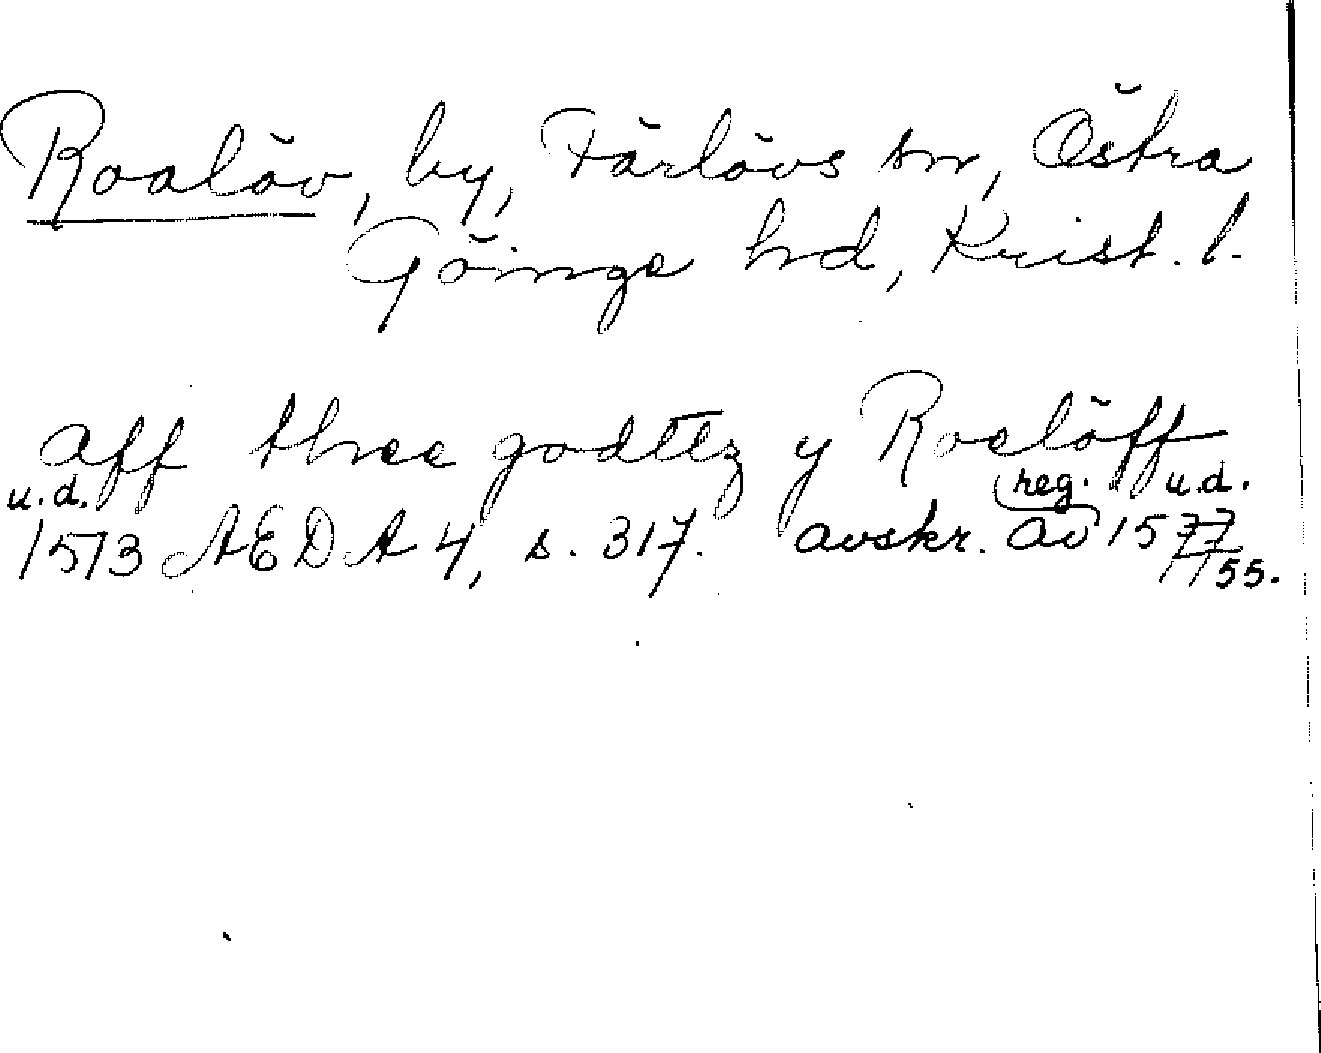 Roalöv, by, Färlövs sn, Östra
Göinge hd, Krist. l.
aff three godtēz y Roelöff
u.d. reg. u.d.
1513 AEDA 4, s. 317. avskr. av 1577
55.